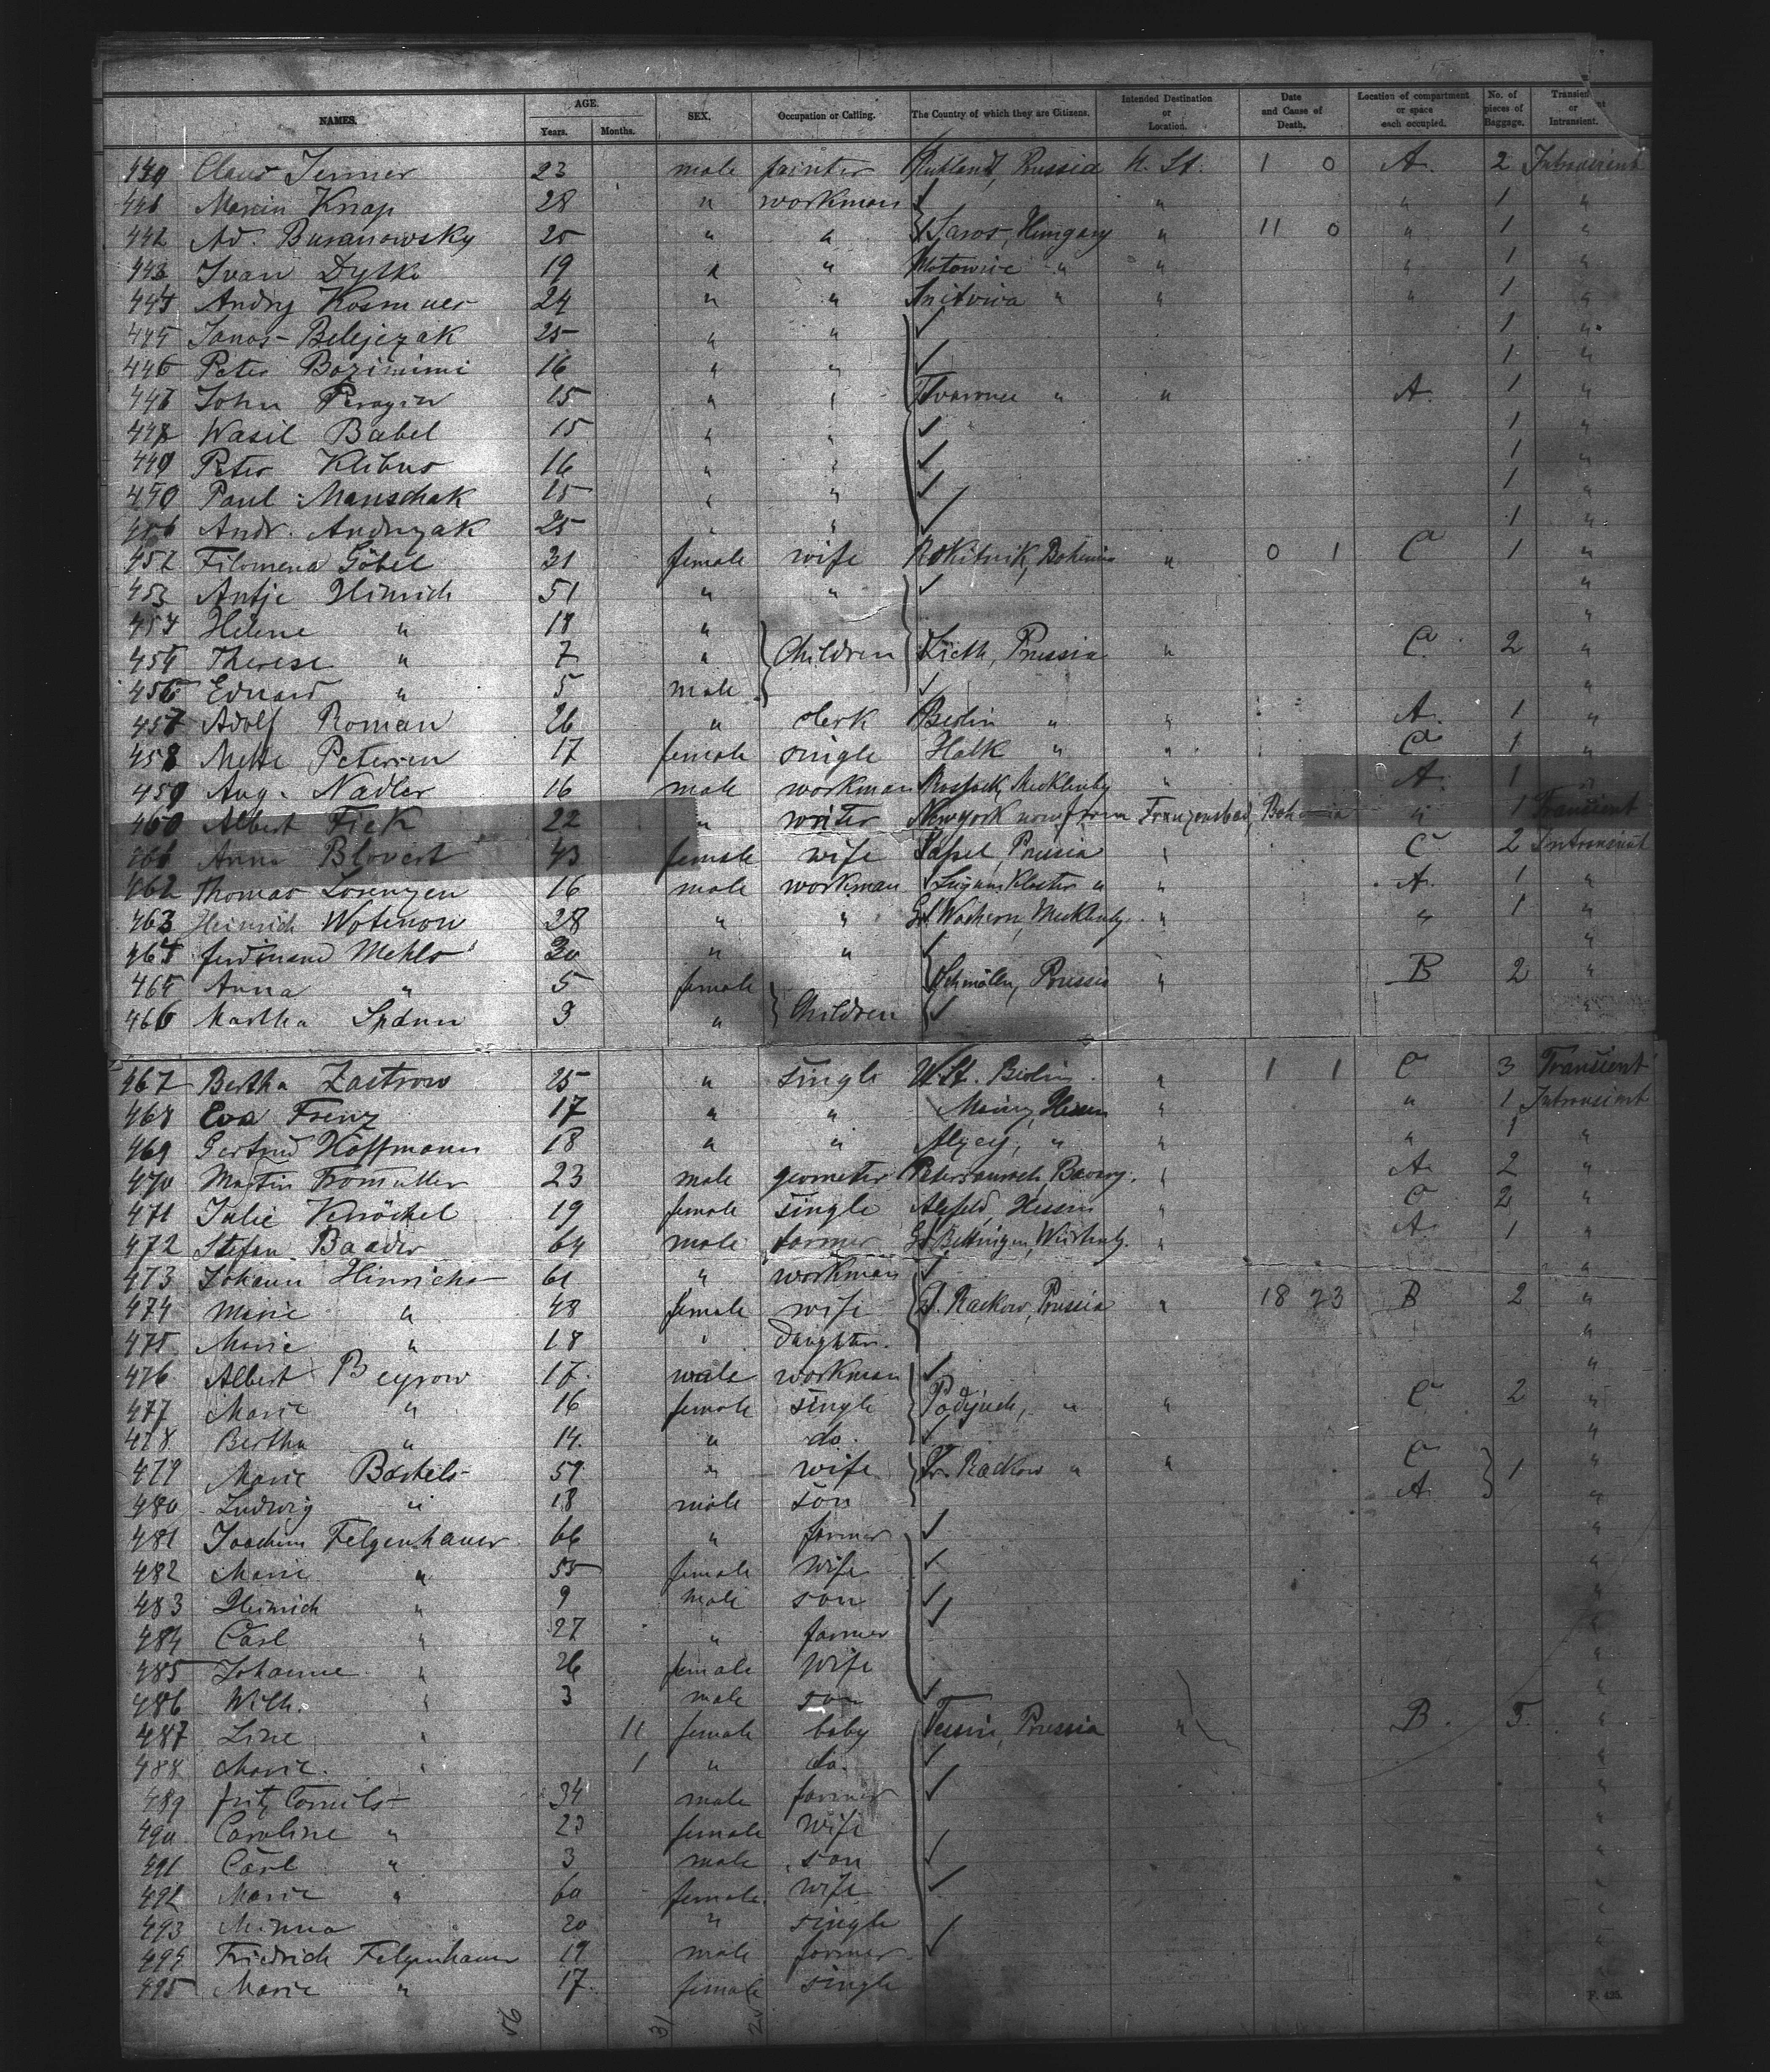 NAMES. AGE. Years. Months. SEX. Occupation or Calling. The Country of which they are Citizens. Intended Destination or Location. Date and Cause of Death. Location of compartment or space each occupied. No. of pieces of Baggage. Transient or Intransient.
Claus 23 male painter Prussia U. St. 1 0 A. 2 Intransient
441 Knap 28 " workman ✓ " " 1 "
442 Ad. Buranowsky 25 " " Saros, Hungary " 11 0 " 1 "
443 Ivan Dytko 19 " " " " " 1 "
444 Andrij 24 " " " " " 1 "
445 Janos Belejczak 25 " " ✓ 1 "
446 Peter 16 " " ✓ 1 "
John 15 " " " " A. 1 "
448 Wasil Babel 15 " " ✓ 1 "
449 Peter Klibus 16 " " ✓ 1 "
450 Paul Manschak 15 " " ✓ 1 "
Andr. 25 " " ✓ 1 "
452 Filomena Göbel 31 female wife Rokitnik, Bohemia " 0 1 C 1 "
453 Antje Hinrich 51 " " ✓ "
454 Helene " 18 " "
455 Therese " 7 " Children Lieth, Prussia " C. 2 "
456 Eduard " 5 male ✓ "
457 Adolf Roman 26 " clerk Berlin " " A. 1 "
458 Mette Petersen 17 female single Halk " " C 1 "
459 Aug. Nadler 16 male workman Rostock, Mecklenbg " A. 1 "
460 Albert Fick 22 " writer Newyork now from Franzensbad, Bohemia " 1 Transient
461 Anna Blovert 43 female wife Prussia " C 2 Intransient
462 Thomas Lorenzen 16 male workman Lügumkloster " " A. 1 "
463 Heinrich Wotenow 28 " " Gr. Mecklenbg. " " 1 "
464 Ferdinand Mehls 30 " " ✓ "
465 Anna " 5 female Schmölln, Prussia " B 2 "
466 Martha Spänn 3 " Children ✓ "
467 Bertha Zastrow 25 " single U. St. Berlin " 1 1 C 3 Transient
468 Eva Frenz 17 " " Mainz, Hessen " " 1 Intransient
469 Gertrud Hoffmann 18 " " Alzey, " " " 1 "
470 Martin Fromüller 23 male geometer " A. 2 "
471 Julie Knöchel 19 female single Alsfeld, Hessen " C 2 "
472 Stefan Baader 64 male farmer Gr. Bettingen, Würtenbg. " A. 1 "
473 Johann Hinrichs 61 " workman ✓ "
474 Marie " 48 female wife Gr. Rackow, Prussia " 18 23 B 2 "
475 Marie " 18 " daughter. "
476 Albert Beyrow 17. male workman ✓ "
477 Marie " 16 female single " " C 2 "
478 Bertha " 14. " do. ✓ "
479 Marie Bartels 59 " wife Gr. Rackow " " C 1 "
480 Ludwig " 18 male son A. "
481 Joachim Felgenhauer 66 " farmer ✓ "
482 Marie " 55 female Wife ✓ "
483 Heinrich " 9 male son ✓ "
484 Carl " 27 " farmer ✓ "
485 Johanne " 26 female Wife "
486 Wilh. " 3 male son ✓ "
487 Line " 11 female baby Tessin, Prussia " B. 5. "
488 Marie. " 1 " do. ✓ "
489 Fritz Cornils 34 male farmer ✓ "
490 Caroline " 23 female Wife "
491 Carl " 3 male son ✓ "
492 Marie " 60 female. Wife ✓ "
493 Minna 20 " single "
494 Friedrich Felgenhauer 19 male farmer ✓ "
495 Marie " 17. female single
F. 435.
56 31